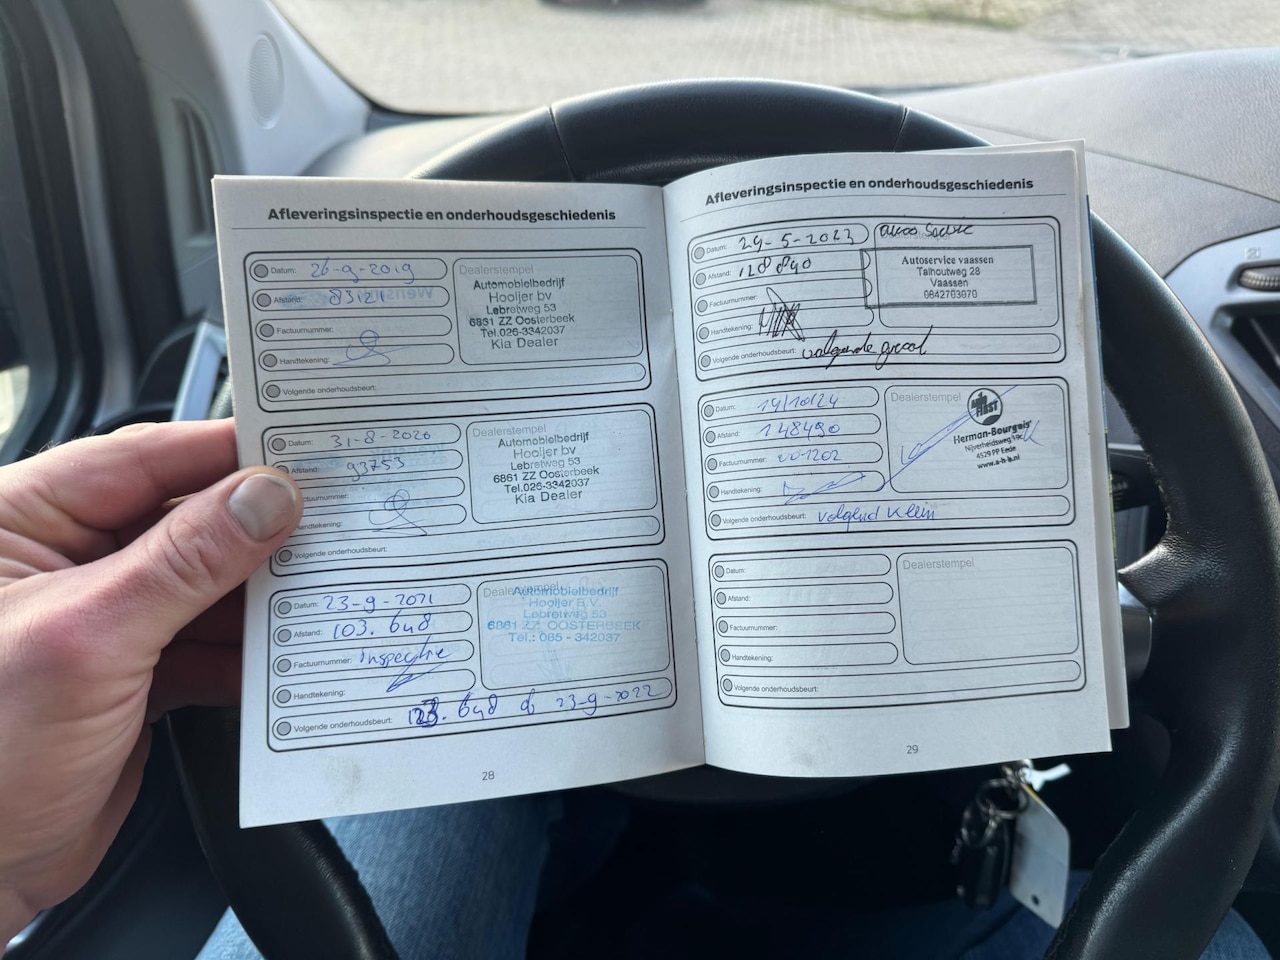 Afleveringsinspectie en onderhoudsgeschiedenis
Datum: 26-9-2019
Afstand: 83121
Factuurnummer:
Handtekening:
Volgende onderhoudsbeurt:
Dealerstempel
Automobielbedrijf
Hooijer bv
Lebretweg 53
6861 ZZ Oosterbeek
Tel.026-3342037
Kia Dealer
Datum: 31-8-2020
Afstand: 93753
Factuurnummer:
Handtekening:
Volgende onderhoudsbeurt:
Dealerstempel
Automobielbedrijf
Hooijer bv
Lebretweg 53
6861 ZZ Oosterbeek
Tel.026-3342037
Kia Dealer
Datum: 23-9-2021
Afstand: 103.648
Factuurnummer: Inspectie
Handtekening:
Volgende onderhoudsbeurt: 123.648 of 23-9-2022
Dealerstempel
Automobielbedrijf
Hooijer B.V.
Lebretweg 53
6861 ZZ OOSTERBEEK
Tel.: 085 - 342037
28
Afleveringsinspectie en onderhoudsgeschiedenis
Datum: 24-5-2023
Afstand: 128840
Factuurnummer:
Handtekening:
Volgende onderhoudsbeurt: volgende groot
Dealerstempel
Autoservice vaassen
Talhoutweg 28
Vaassen
0642703970
Datum: 14/10/24
Afstand: 148490
Factuurnummer: 001202
Handtekening:
Volgende onderhoudsbeurt: volgend klein
Dealerstempel
FIRST
Herman-Bourgois
Nijverheidsweg
4529 PP Eede
www.a-h-b.nl
Datum:
Afstand:
Factuurnummer:
Handtekening:
Volgende onderhoudsbeurt:
Dealerstempel
29